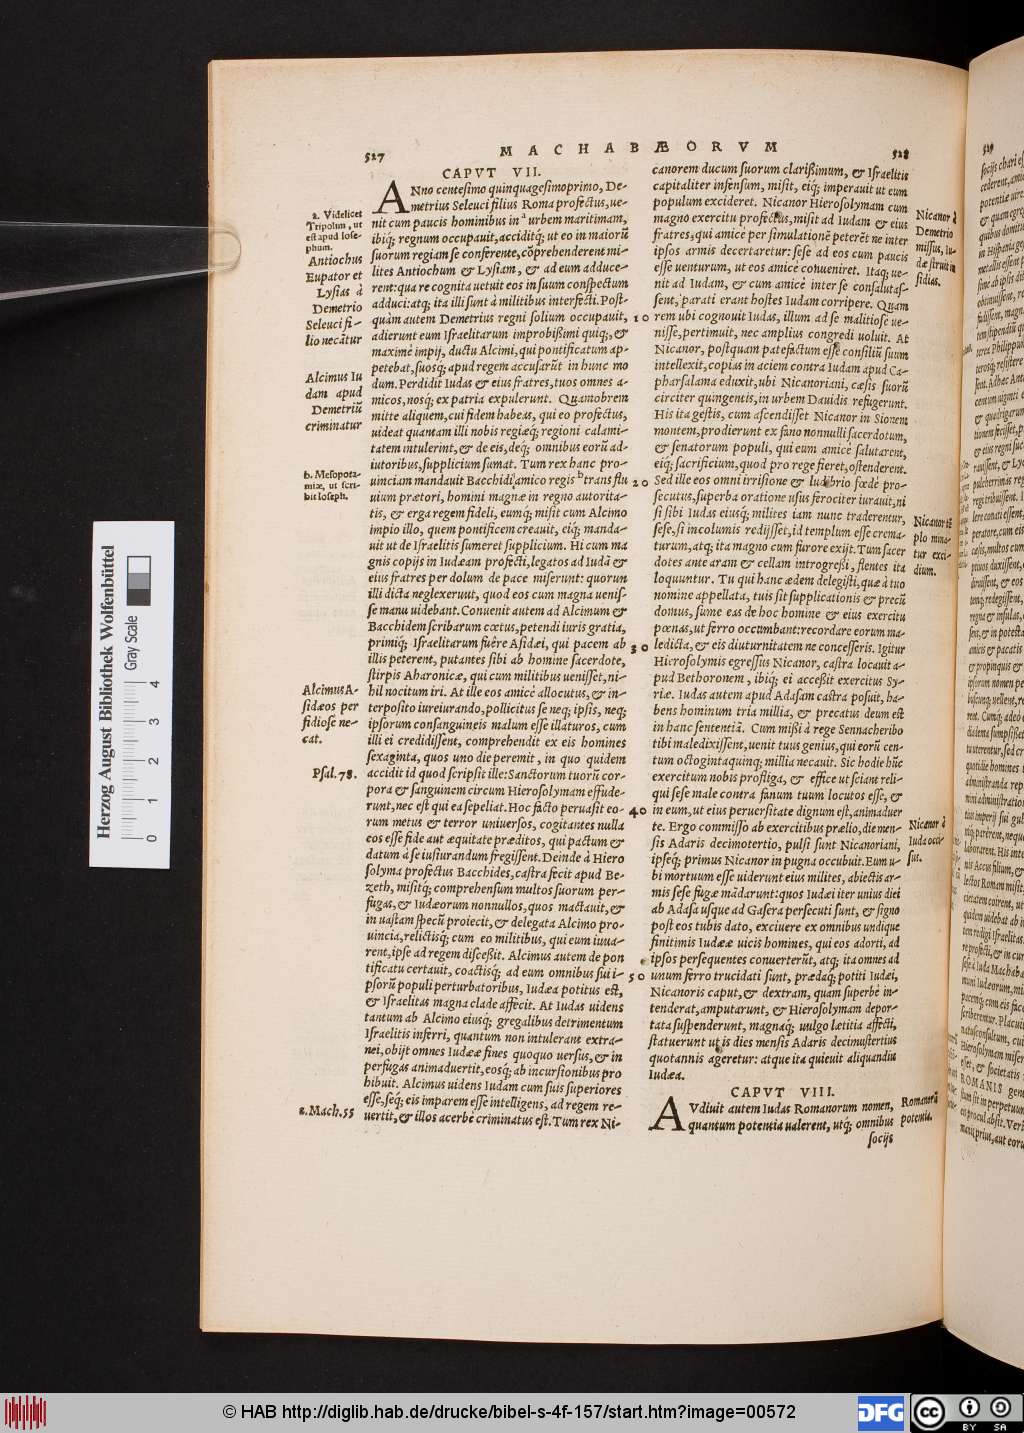 527 MACHABÆORVM 528
CAPVT VII.
ANno centesimo quinquagesimoprimo, De-
metrius Seleuci filius Roma profectus, ue-
nit cum paucis hominibus in ᵃ urbem maritimam,
ibiq́; regnum occupauit, acciditq́; ut eo in maiorũ
suorum regiam se conferente, cõprehenderent mi-
lites Antiochum & Lysiam, & ad eum adduce-
rent: qua re cognita uetuit eos in suum conspectum
adduci: atq; ita illi sunt à militibus interfecti. Post-
quàm autem Demetrius regni solium occupauit,
adierunt eum Israelitarum improbißimi quiq;, &
maximè impij, ductu Alcimi, qui pontificatum ap-
petebat, suosq; apud regem accusarũt in hunc mo
dum. Perdidit Iudas & eius fratres, tuos omnes a-
micos, nosq; ex patria expulerunt. Quamobrem
mitte aliquem, cui fidem habeas, qui eo profectus,
uideat quantam illi nobis regiæq; regioni calami-
tatem intulerint, & de eis, deq́; omnibus eorũ ad-
iutoribus, supplicium sumat. Tum rex hanc pro-
uinciam mandauit Bacchidi, amico regis ᵇ trans flu
uium prætori, homini magnæ in regno autorita-
tis, & erga regem fideli, eumq́; misit cum Alcimo
impio illo, quem pontificem creauit, eiq́; manda-
uit ut de Israelitis sumeret supplicium. Hi cum ma
gnis copijs in Iudæam profecti, legatos ad Iudã &
eius fratres per dolum de pace miserunt: quorun
illi dicta neglexerunt, quod eos cum magna uenis-
se manu uidebant. Conuenit autem ad Alcimum &
Bacchidem scribarum cœtus, petendi iuris gratia,
primiq́; Israelitarum fuêre Asidei, qui pacem ab
illis peterent, putantes sibi ab homine sacerdote,
stirpis Aharonicæ, qui cum militibus uenisset, ni-
hil nocitum iri. At ille eos amicè allocutus, & in-
terposito iureiurando, pollicitus se neq; ipsis, neq;
ipsorum consanguineis malum esse illaturos, cum
illi ei credidissent, comprehendit ex eis homines
sexaginta, quos uno die peremit, in quo quidem
accidit id quod scripsit ille: Sanctorum tuorũ cor-
pora & sanguinem circum Hierosolymam effude-
runt, nec est qui ea sepeliat. Hoc facto peruasit eo-
rum metus & terror uniuersos, cogitantes nulla
eos esse fide aut æquitate præditos, qui pactum &
datum à se iusiurandum fregissent. Deinde à Hiero
solyma profectus Bacchides, castra fecit apud Be-
zeth, misitq́; comprehensum multos suorum per-
fugas, & Iudæorum nonnullos, quos mactauit, &
in uastam specũ proiecit, & delegata Alcimo pro-
uincia, relictisq́; cum eo militibus, qui eum iuua-
rent, ipse ad regem disceßit. Alcimus autem de pon
tificatu certauit, coactisq́; ad eum omnibus sui i-
psorũ populi perturbatoribus, Iudæa potitus est,
& Israelitas magna clade affecit. At Iudas uidens
tantum ab Alcimo eiusq́; gregalibus detrimentum
Israelitis inferri, quantum non intulerant extra-
nei, obijt omnes Iudææ fines quoquo uersus, & in
perfugas animaduertit, eosq́; ab incursionibus pro
hibuit. Alcimus uidens Iudam cum suis superiores
esse, seq́; eis imparem esse intelligens, ad regem re-
uertit, & illos acerbè criminatus est. Tum rex Ni-
a. Videlicet
Tripolim, ut
est apud Iose-
phum.
Antiochus
Eupator et
Lysias à
Demetrio
Seleuci fi-
lio necãtur
Alcimus Iu
dam apud
Demetriũ
criminatur
b. Mesopota-
miæ, ut scri-
bit Ioseph.
Alcimus A-
sidæos per
fidiose ne-
cat.
Psal. 78.
2. Mach. 55
10
20
30
40
50
canorem ducum suorum clarißimum, & Israelitis
capitaliter infensum, misit, eiq́; imperauit ut eum
populum excideret. Nicanor Hierosolymam cum
magno exercitu profectus, misit ad Iudam & eius
fratres, qui amicè per simulationẽ peterẽt ne inter
ipsos armis decertaretur: sese ad eos cum paucis
esse uenturum, ut eos amicè conueniret. Itaq; ue-
nit ad Iudam, & cum amicè inter se consalutas-
sent, parati erant hostes Iudam corripere. Quam
rem ubi cognouit Iudas, illum ad se malitiose ue-
nisse, pertimuit, nec amplius congredi uoluit. At
Nicanor, postquam patefactum esse consiliũ suum
intellexit, copias in aciem contra Iudam apud Ca-
pharsalama eduxit, ubi Nicanoriani, cæsis suorũ
circiter quingentis, in urbem Dauidis refugerunt.
His ita gestis, cum ascendisset Nicanor in Sionem
montem, prodierunt ex fano nonnulli sacerdotum,
& senatorum populi, qui eum amicè salutarent,
eiq́; sacrificium, quod pro rege fieret, ostenderent.
Sed ille eos omni irrisione & ludibrio fœdè pro-
secutus, superba oratione usus ferociter iurauit, ni
si sibi Iudas eiusq́; milites iam nunc traderentur,
sese, si incolumis redijsset, id templum esse crema-
turum, atq; ita magno cum furore exijt. Tum sacer
dotes ante aram & cellam introgreßi, flentes ita
loquuntur. Tu qui hanc ædem delegisti, quæ à tuo
nomine appellata, tuis sit supplicationis & precũ
domus, sume eas de hoc homine & eius exercitu
pœnas, ut ferro occumbant: recordare eorum ma-
ledicta, & eis diuturnitatem ne concesseris. Igitur
Hierosolymis egressus Nicanor, castra locauit a-
pud Bethoronem, ibiq́; ei acceßit exercitus Sy-
riæ. Iudas autem apud Adasam castra posuit, ha-
bens hominum tria millia, & precatus deum est
in hanc sententiã. Cum mißi à rege Sennacheribo
tibi maledixissent, uenit tuus genius, qui eorũ cen-
tum octoginta quinq; millia necauit. Sic hodie hũc
exercitum nobis profliga, & effice ut sciant reli-
qui sese male contra fanum tuum locutos esse, &
in eum, ut eius peruersitate dignum est, animaduer
te. Ergo commisso ab exercitibus prælio, die men-
sis Adaris decimotertio, pulsi sunt Nicanoriani,
ipseq́; primus Nicanor in pugna occubuit. Eum u-
bi mortuum esse uiderunt eius milites, abiectis ar-
mis sese fugæ mãdarunt: quos Iudæi iter unius diei
ab Adasa usque ad Gasera persecuti sunt, & signo
post eos tubis dato, exciuere ex omnibus undique
finitimis Iudææ uicis homines, qui eos adorti, ad
ipsos persequentes conuerterũt, atq; ita omnes ad
unum ferro trucidati sunt, prædaq́; potiti Iudæi,
Nicanoris caput, & dextram, quam superbè in-
tenderat, amputarunt, & Hierosolymam depor-
tata suspenderunt, magnaq́; uulgo lætitia affecti,
statuerunt ut is dies mensis Adaris decimustertius
quotannis ageretur: atque ita quieuit aliquandiu
Iudæa.
CAPVT VIII.
AVdiuit autem Iudas Romanorum nomen,
quantum potentia ualerent, utq́; omnibus
socijs
Nicanor à
Demetrio
missus, Iu-
dæ struit in
sidias.
Nicanor tẽ
plo mina-
tur exci-
dium.
Nicanor à
Iuda occi-
sus.
Romanorũ
potentia.
529
Herzog August Bibliothek Wolfenbüttel
Gray Scale
0 1 2 3 4
© HAB http://diglib.hab.de/drucke/bibel-s-4f-157/start.htm?image=00572
DFG
cc BY SA